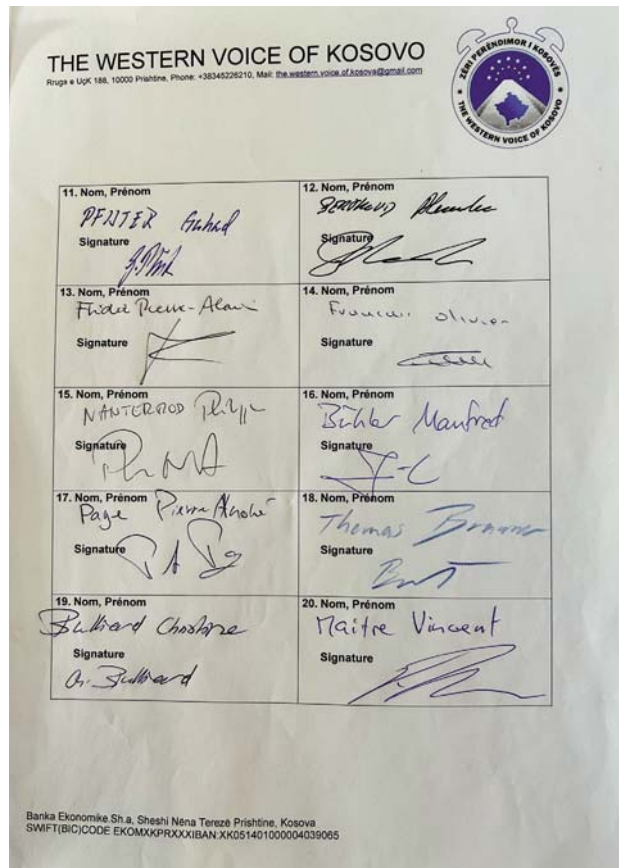 THE WESTERN VOICE OF KOSOVO
Rruga e UçK 188, 10000 Prishtine, Phone: +38345226210, Mail: the.western.voice.of.kosova@gmail.com
ZËRI PERËNDIMOR I KOSOVËS
THE WESTERN VOICE OF KOSOVO
11. Nom, Prénom
PFISTER Gerhard
Signature
12. Nom, Prénom
Signature
13. Nom, Prénom
Fridez Pierre-Alain
Signature
14. Nom, Prénom
Français Olivier
Signature
15. Nom, Prénom
NANTERMOD Philippe
Signature
16. Nom, Prénom
Bühler Manfred
Signature
17. Nom, Prénom
Page Pierre-André
Signature
PA Pg
18. Nom, Prénom
Thomas Brunner
Signature
19. Nom, Prénom
Bulliard Christine
Signature
C. Bulliard
20. Nom, Prénom
Maitre Vincent
Signature
Banka Ekonomike.Sh.a, Sheshi Nëna Terezë Prishtine, Kosova
SWIFT(BIC)CODE EKOMXKPRXXXIBAN:XK051401000004039065